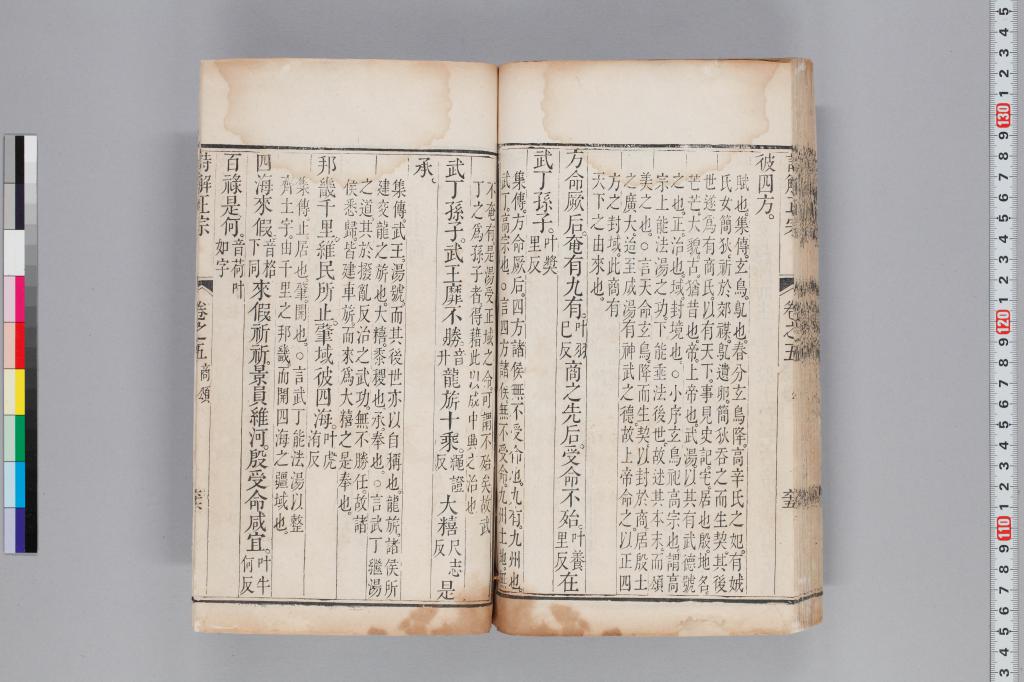 彼四方。
賦也。集傳。玄鳥。鳦也。春分玄鳥降。高辛氏之妃。有娀
氏女簡狄。祈於郊禖。鳦遺卵。簡狄吞之而生契。其後
世遂為有商氏。以有天下。事見史記。宅。居也。殷。地名。
芒芒。大貌。古。猶昔也。帝。上帝也。武湯。以其有武德號
之也。正。治也。域。封境也。○小序玄鳥。祀高宗也。謂高
宗上能法湯之功。下能垂法後世。故述其本末。而頌
美之也。○言天命玄鳥。降而生契。以封於商。居殷土
之廣大。迨至成湯有神武之德。故上帝命之。以正四
方之封域。此商有
天下之由來也。
方命厥后。奄有九有。叶羽已反商之先后。受命不殆。叶養里反在
武丁孫子。叶奬里反
集傳。方命厥后。四方諸侯。無不受命也。九有。九州也。
武丁。高宗也。○言四方諸侯。無不受命。九州土地。無
不奄有。是湯受正域之命。可謂不殆矣。故武
丁之為孫子者。得藉此以成中興之治也。
武丁孫子。武王靡不勝。音升龍旂十乘。繩證反大糦尺志反是
承。
集傳。武王。湯號。而其後世亦以自稱也。龍旂。諸侯所
建交龍之旂也。大糦。黍稷也。承。奉也。○言武丁繼湯
之道。其於撥亂反治之武功。無不勝任。故諸
侯悉歸。皆建車旂。而來為大糦之是奉也。
邦畿千里。維民所止。肇域彼四海。叶虎洧反
集傳。止。居也。肇。開也。○言武丁能法湯以整
齊土宇。由千里之邦畿。而開四海之疆域也。
四海來假。音格下同來假祈祈。景員維河。殷受命咸宜。叶牛何反
百祿是何。音荷叶如字
詩解正宗
卷之五
商頌